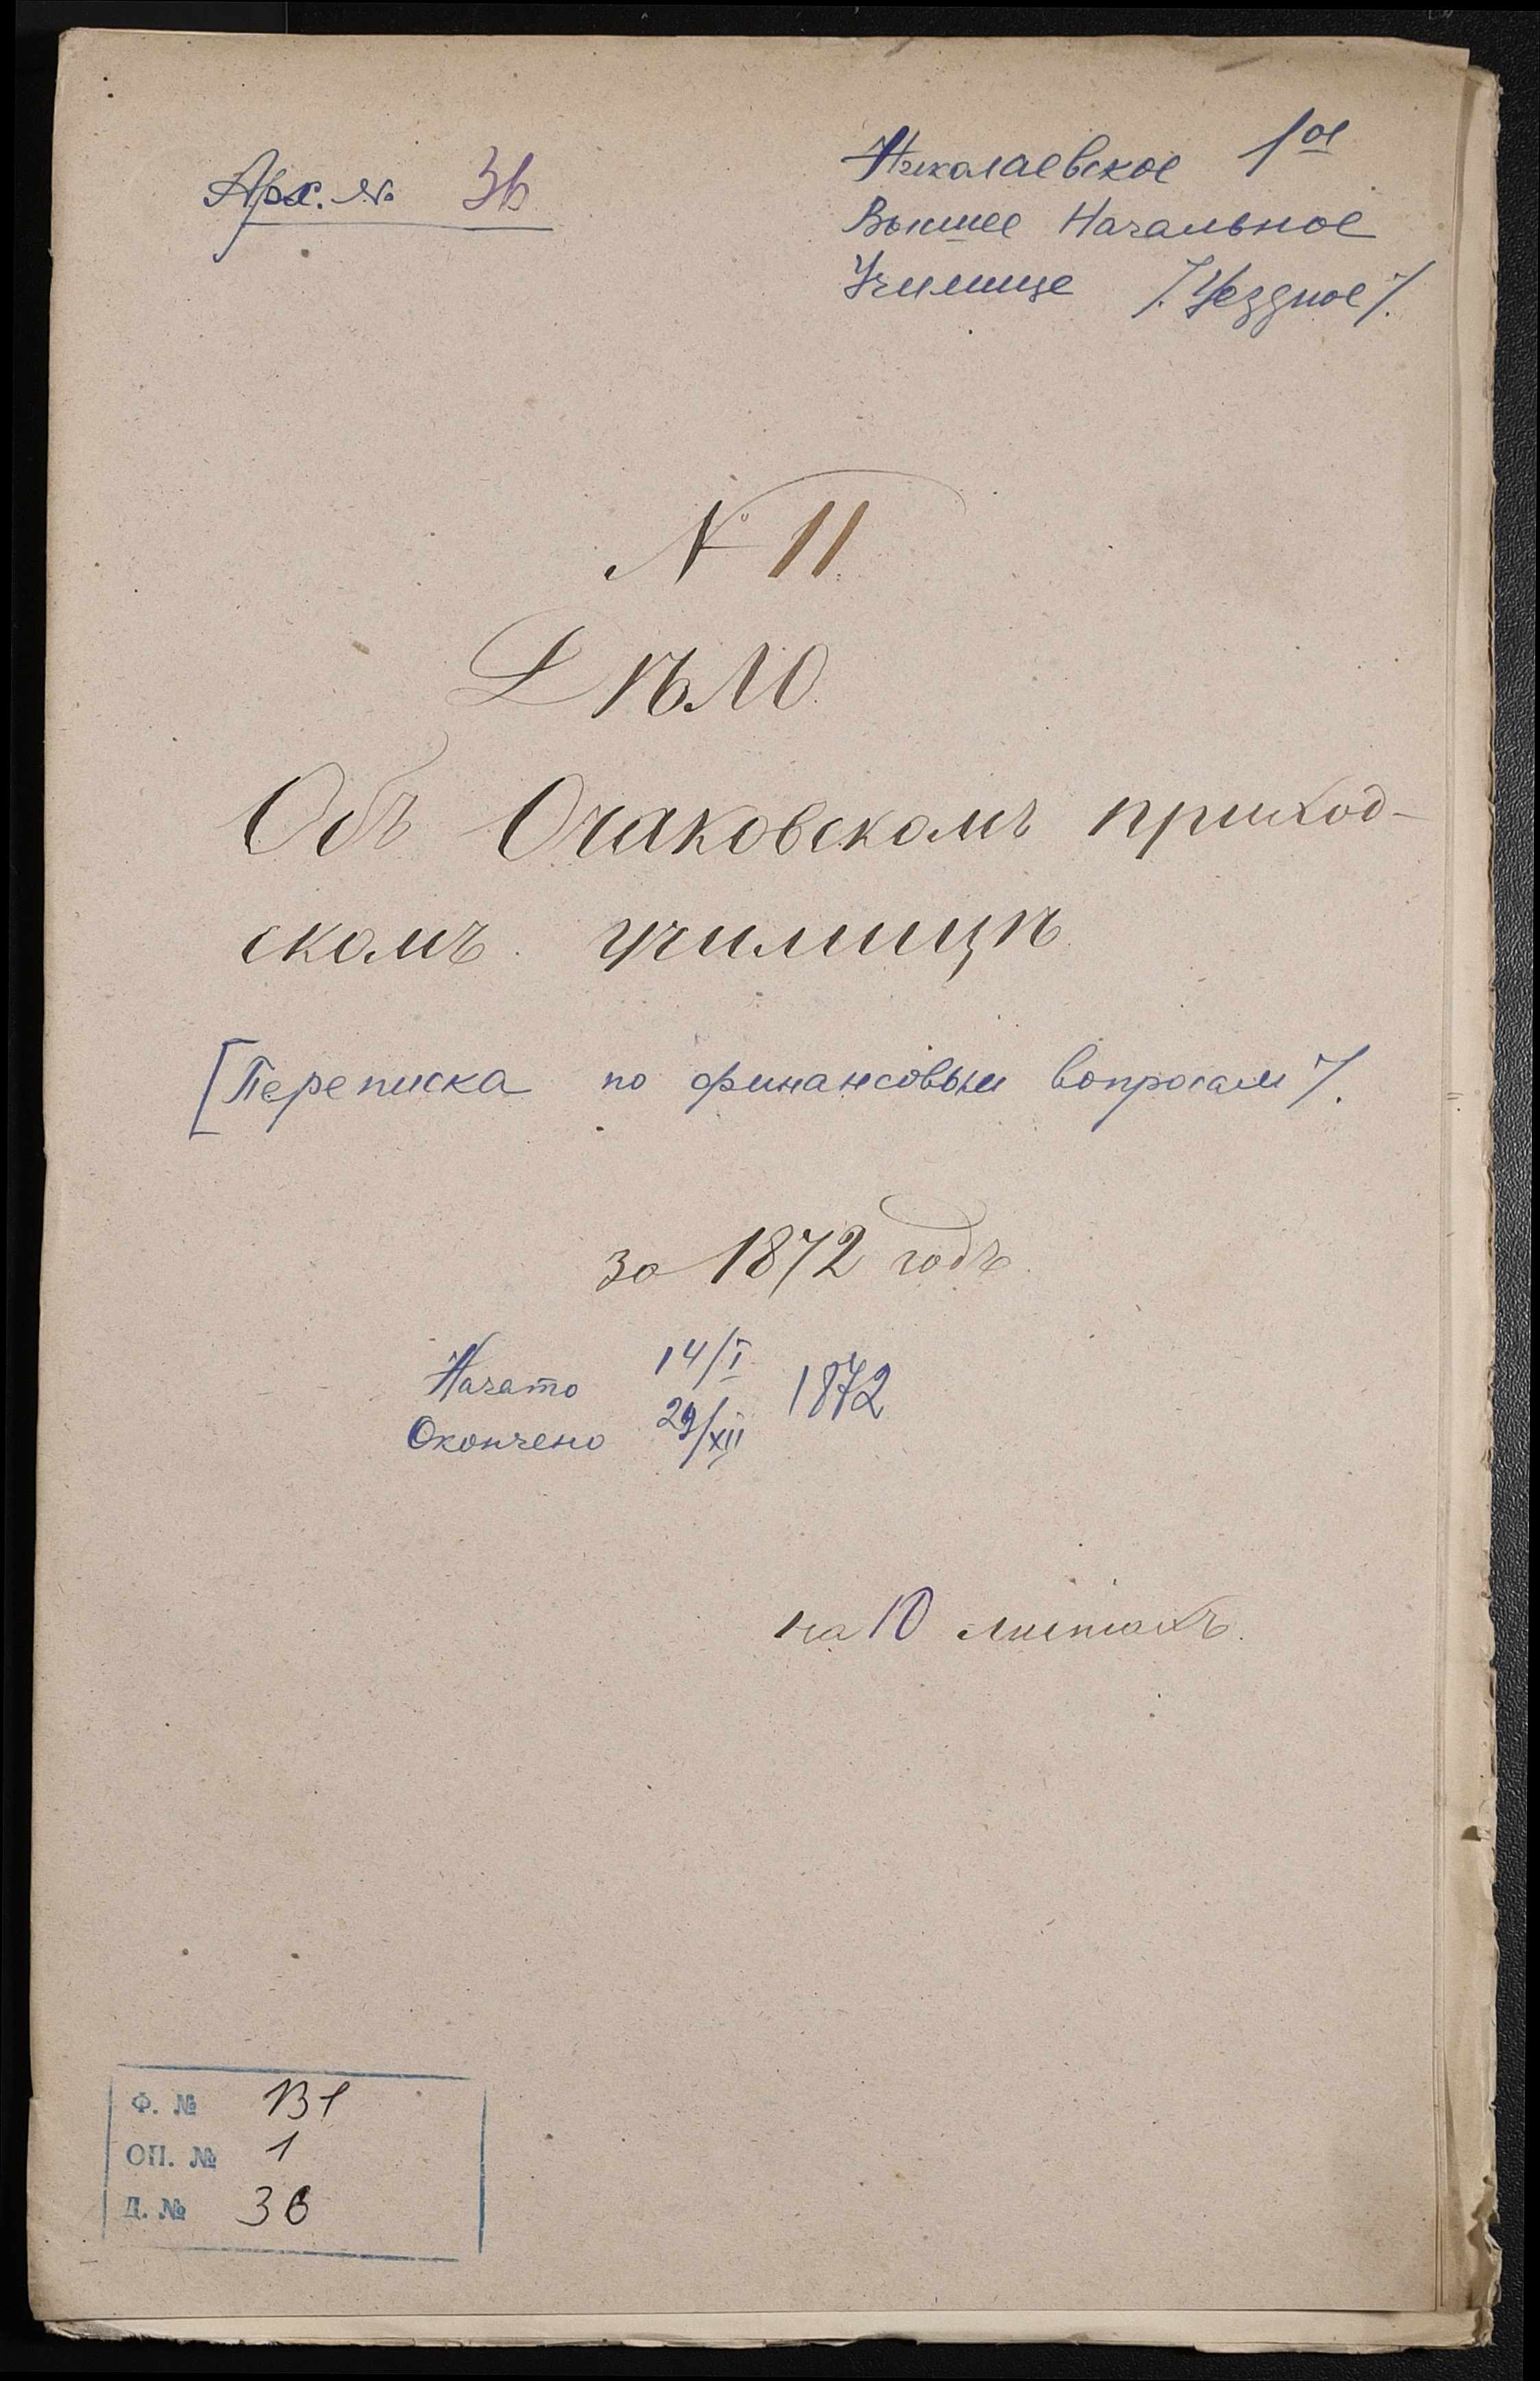 Арх. № 36
Николаевское 1ое
Высшее Начальное
Училище /. Уездное /.
№ 11
Дѣло
Объ Очаковскомъ приход-
скомъ училищѣ
[Переписка по финансовым вопросам /.
за 1872 годъ
Начато 14/I 1872
Окончено 29/XII
на 10 листахъ.
Ф. № 131
ОП. № 1
Д. № 36